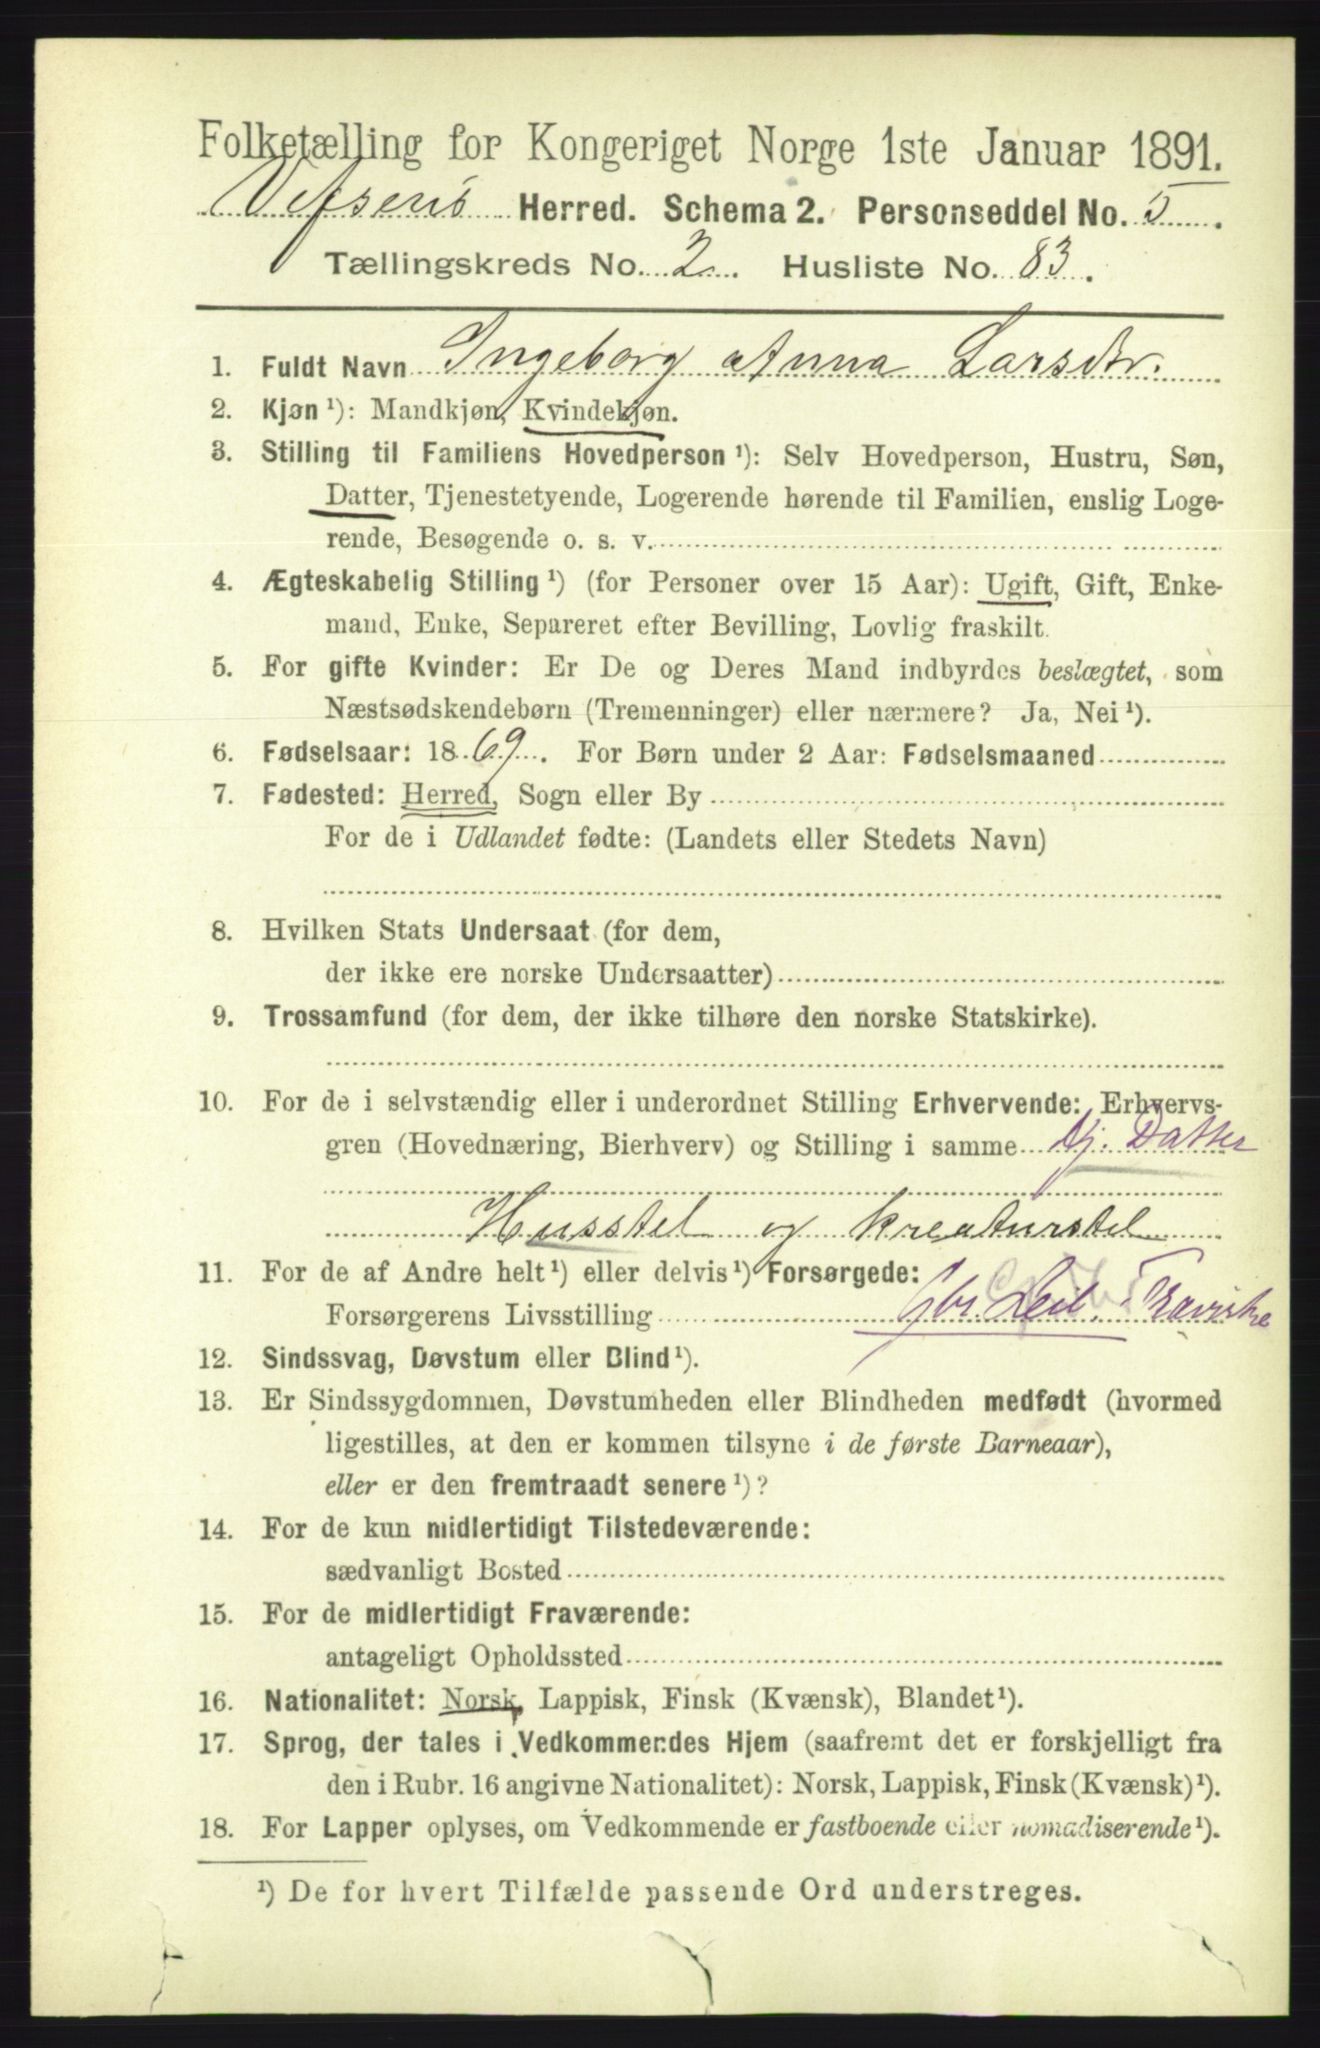 Folketælling for Kongeriget Norge 1ste Januar 1891.
Vefsens Herred. Schema 2. Personseddel No. 5.
Tællingskreds No. 2. Husliste No. 83.
1. Fuldt Navn Ingeborg Anna Larsdtr.
2. Kjøn ¹): Mandkjøn, Kvindekjøn.
3. Stilling til Familiens Hovedperson ¹): Selv Hovedperson, Hustru, Søn,
Datter, Tjenestetyende, Logerende hørende til Familien, enslig Loge-
rende, Besøgende o. s. v.
4. Ægteskabelig Stilling ¹) (for Personer over 15 Aar): Ugift, Gift, Enke-
mand, Enke, Separeret efter Bevilling, Lovlig fraskilt.
5. For gifte Kvinder: Er De og Deres Mand indbyrdes beslægtet, som
Næstsødskendebørn (Tremenninger) eller nærmere? Ja, Nei ¹).
6. Fødselsaar: 1869. For Børn under 2 Aar: Fødselsmaaned
7. Fødested: Herred, Sogn eller By
For de i Udlandet fødte: (Landets eller Stedets Navn)
8. Hvilken Stats Undersaat (for dem,
der ikke ere norske Undersaatter)
9. Trossamfund (for dem, der ikke tilhøre den norske Statskirke).
10. For de i selvstændig eller i underordnet Stilling Erhvervende: Erhvervs-
gren (Hovednæring, Bierhverv) og Stilling i samme Hj. Datter
Husstel og kreaturstel
11. For de af Andre helt ¹) eller delvis ¹) Forsørgede:
Forsørgerens Livsstilling Gbr
12. Sindssvag, Døvstum eller Blind ¹).
13. Er Sindssygdommen, Døvstumheden eller Blindheden medfødt (hvormed
ligestilles, at den er kommen tilsyne i de første Barneaar),
eller er den fremtraadt senere ¹)?
14. For de kun midlertidigt Tilstedeværende:
sædvanligt Bosted
15. For de midlertidigt Fraværende:
antageligt Opholdssted
16. Nationalitet: Norsk, Lappisk, Finsk (Kvænsk), Blandet ¹).
17. Sprog, der tales i Vedkommendes Hjem (saafremt det er forskjelligt fra
den i Rubr. 16 angivne Nationalitet): Norsk, Lappisk, Finsk (Kvænsk) ¹).
18. For Lapper oplyses, om Vedkommende er fastboende eller nomadiserende ¹).
¹) De for hvert Tilfælde passende Ord understreges.